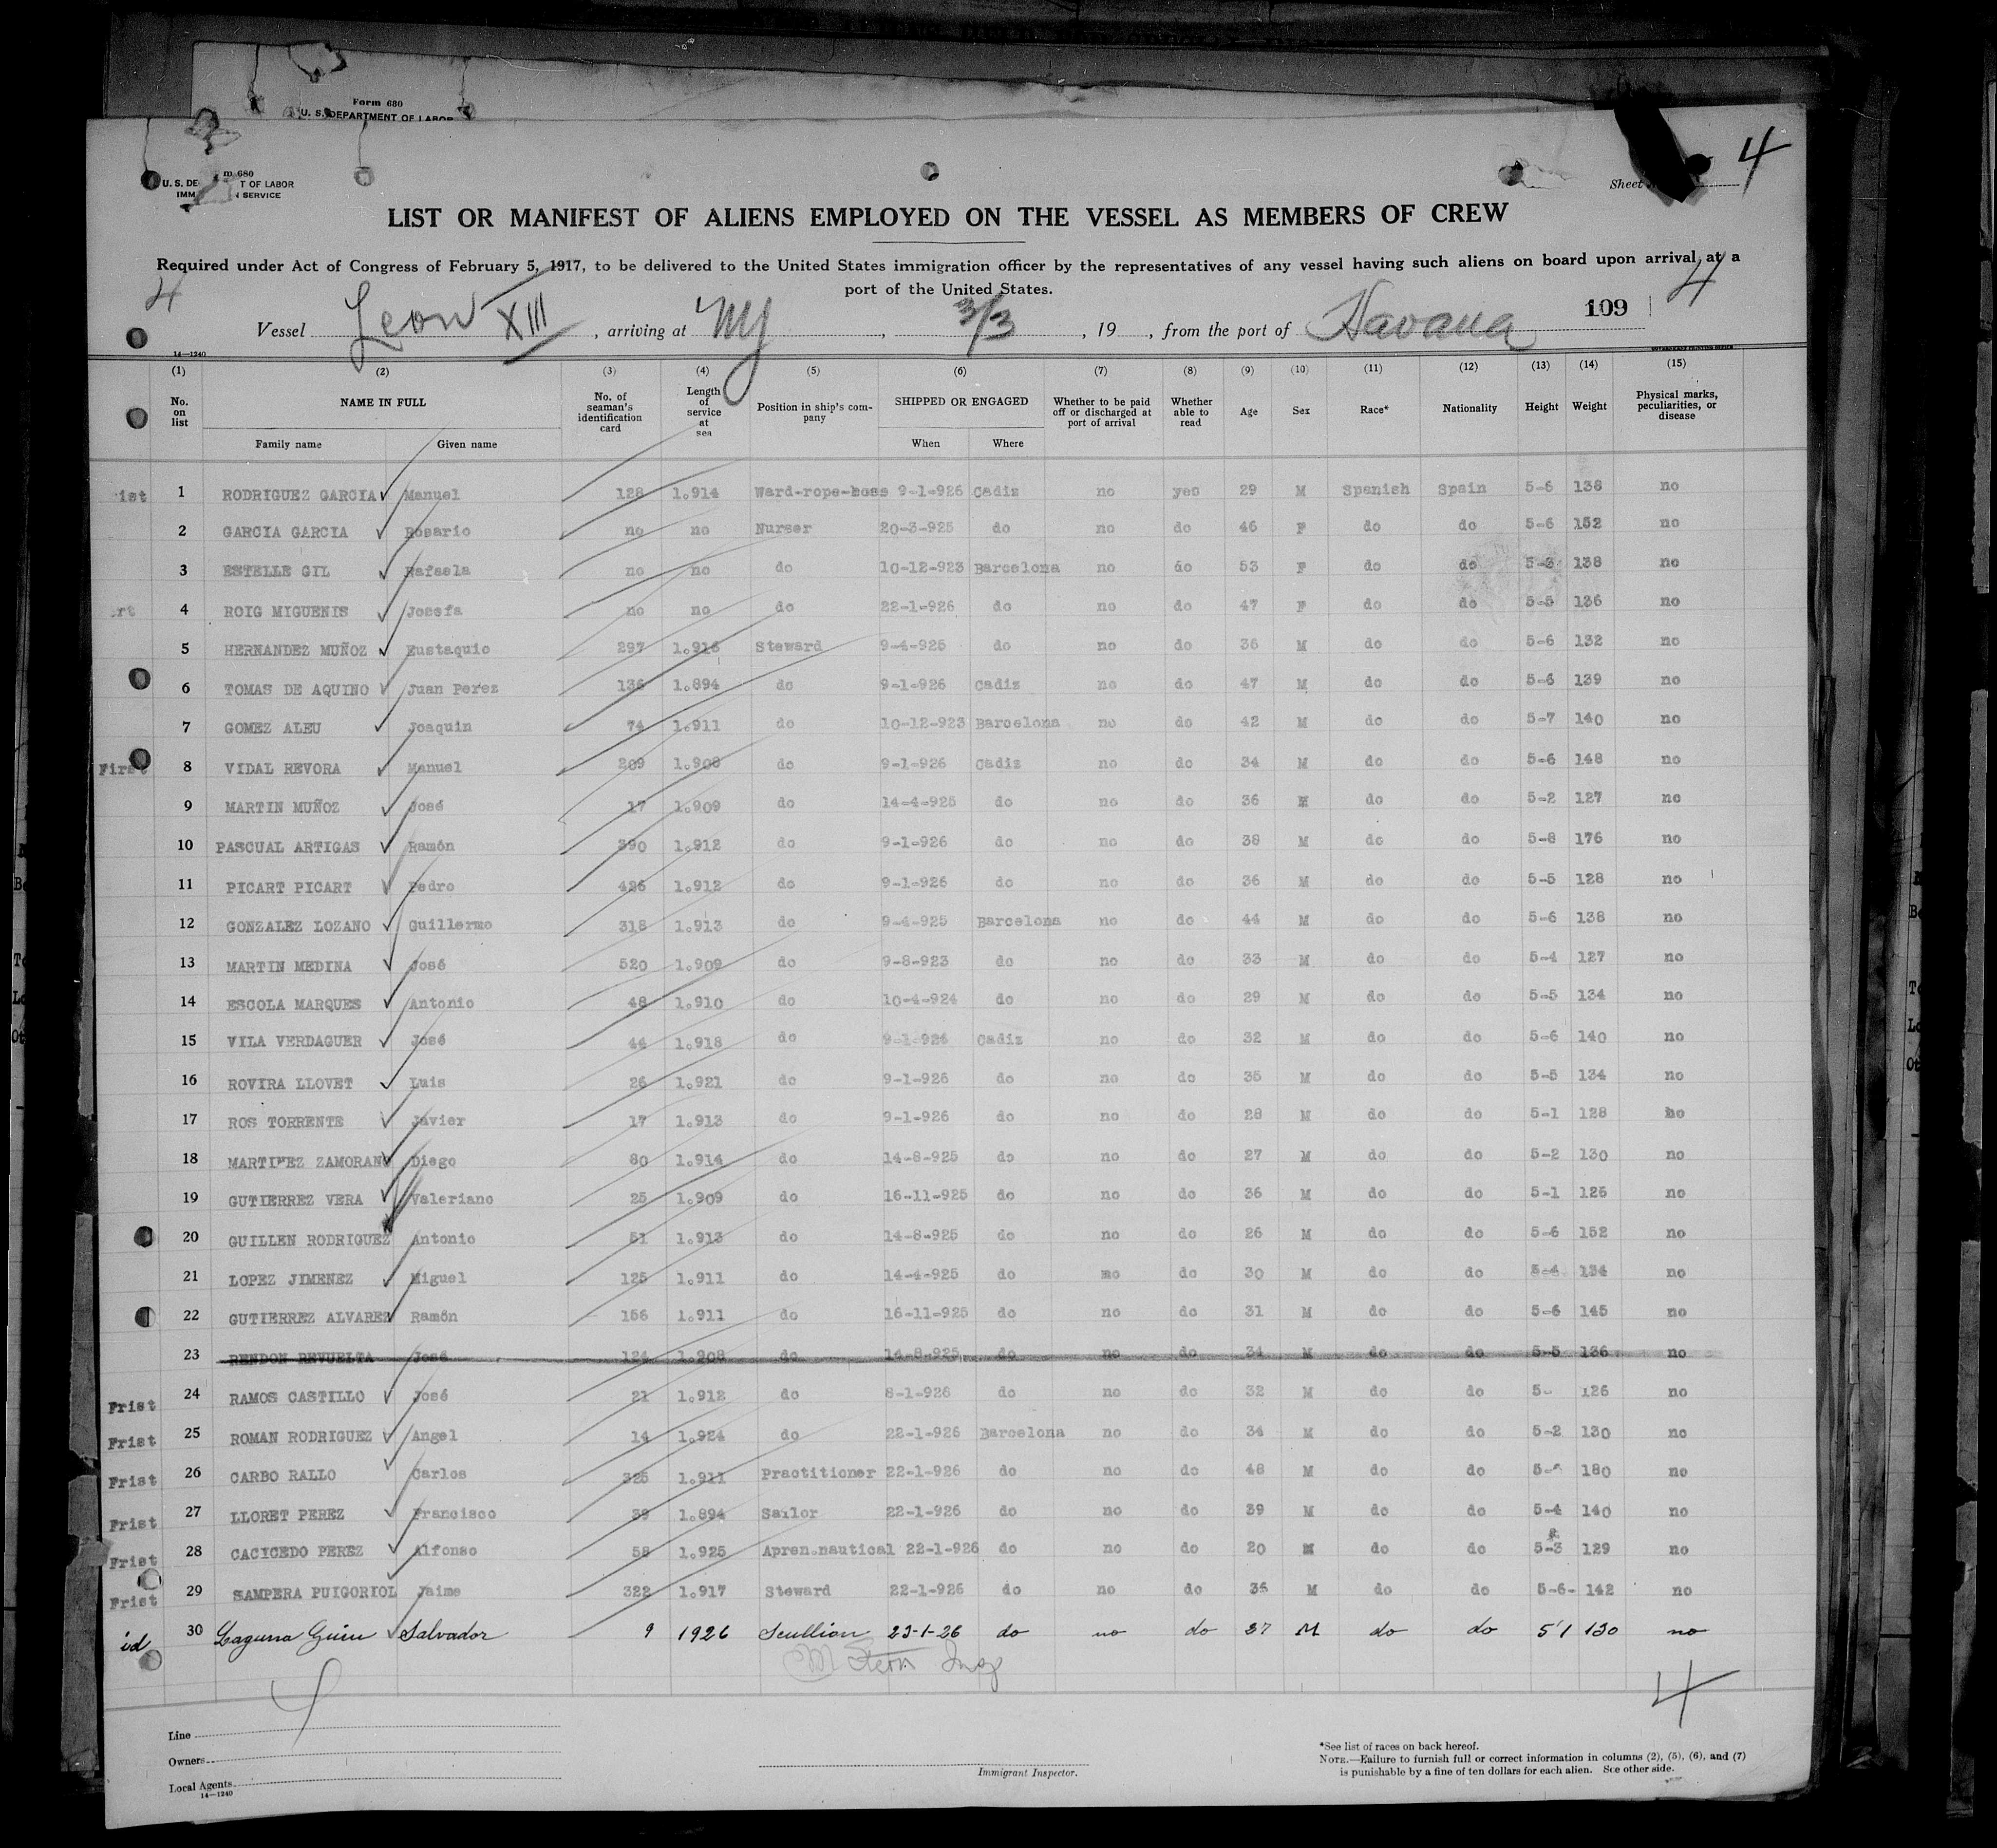 Form 680
U. S. DEPARTMENT OF LABOR
4
m 680
U. S. DE T OF LABOR
IMM N SERVICE
Sheet
LIST OR MANIFEST OF ALIENS EMPLOYED ON THE VESSEL AS MEMBERS OF CREW
Required under Act of Congress of February 5, 1917, to be delivered to the United States immigration officer by the representatives of any vessel having such aliens on board upon arrival at a
port of the United States.
4 4
109
Vessel Leon XIII, arriving at NY, 3/3, 19, from the port of Havana
14—1240
(1) (2) (3) (4) (5) (6) (7) (8) (9) (10) (11) (12) (13) (14) (15)
No. on list NAME IN FULL No. of seaman's identification card Length of service at sea Position in ship's company SHIPPED OR ENGAGED Whether to be paid off or discharged at port of arrival Whether able to read Age Sex Race* Nationality Height Weight Physical marks, peculiarities, or disease
Family name Given name When Where
ist 1 RODRIGUEZ GARCIA Manuel 128 1.914 Ward-rope-boss 9-1-926 Cadiz no yes 29 M Spanish Spain 5-6 138 no
2 GARCIA GARCIA Rosario no no Nurser 20-3-925 do no do 46 F do do 5-6 152 no
3 ESTELLE GIL Rafaela no no do 10-12-923 Barcelona no do 53 F do do 5-3 138 no
rt 4 ROIG MIGUENIS Josefa no no do 22-1-926 do no do 47 F do do 5-5 136 no
5 HERNANDEZ MUÑOZ Eustaquio 297 1.916 Steward 9-4-925 do no do 36 M do do 5-6 132 no
6 TOMAS DE AQUINO Juan Perez 136 1.894 do 9-1-926 Cadiz no do 47 M do do 5-6 139 no
7 GOMEZ ALEU Joaquin 74 1.911 do 10-12-923 Barcelona no do 42 M do do 5-7 140 no
First 8 VIDAL REVORA Manuel 209 1.908 do 9-1-926 Cadiz no do 34 M do do 5-6 148 no
9 MARTIN MUÑOZ José 17 1.909 do 14-4-925 do no do 36 M do do 5-2 127 no
10 PASCUAL ARTIGAS Ramón 390 1.912 do 9-1-926 do no do 38 M do do 5-8 176 no
11 PICART PICART Pedro 426 1.912 do 9-1-926 do no do 36 M do do 5-5 128 no
12 GONZALEZ LOZANO Guillermo 318 1.913 do 9-4-925 Barcelona no do 44 M do do 5-6 138 no
13 MARTIN MEDINA José 520 1.909 do 9-8-923 do no do 33 M do do 5-4 127 no
14 ESCOLA MARQUES Antonio 48 1.910 do 10-4-924 do no do 29 M do do 5-5 134 no
15 VILA VERDAGUER José 44 1.918 do 9-1-926 Cadiz no do 32 M do do 5-6 140 no
16 ROVIRA LLOVET Luis 26 1.921 do 9-1-926 do no do 35 M do do 5-5 134 no
17 ROS TORRENTE Javier 17 1.913 do 9-1-926 do no do 28 M do do 5-1 128 no
18 MARTINEZ ZAMORANO Diego 80 1.914 do 14-8-925 do no do 27 M do do 5-2 130 no
19 GUTIERREZ VERA Valeriano 25 1.909 do 16-11-925 do no do 36 M do do 5-1 125 no
20 GUILLEN RODRIGUEZ Antonio 51 1.913 do 14-8-925 do no do 26 M do do 5-6 152 no
21 LOPEZ JIMENEZ Miguel 125 1.911 do 14-4-925 do mo do 30 M do do 5-4 134 no
22 GUTIERREZ ALVAREZ Ramón 156 1.911 do 16-11-925 do no do 31 M do do 5-6 145 no
23 RENDON REVUELTA José 124 1.908 do 14-8-925 do no do 34 M do do 5-5 136 no
Frist 24 RAMOS CASTILLO José 21 1.912 do 8-1-926 do no do 32 M do do 5- 126 no
Frist 25 ROMAN RODRIGUEZ Angel 14 1.924 do 22-1-926 Barcelona no do 34 M do do 5-2 130 no
Frist 26 CARBO RALLO Carlos 325 1.911 Practitioner 22-1-926 do no do 48 M do do 5- 180 no
Frist 27 LLORET PEREZ Francisco 39 1.894 Sailor 22-1-926 do no do 39 M do do 5-4 140 no
Frist 28 CACICEDO PEREZ Alfonso 58 1.925 Apren.nautical 22-1-926 do no do 20 M do do 5-3 129 no
Frist 29 SAMPERA PUIGORIOL Jaime 322 1.917 Steward 22-1-926 do no do 35 M do do 5-6- 142 no
id 30 Laguna Guiu Salvador 9 1926 Scullion 23-1-26 do no do 27 M do do 5'1 130 no
Insp
4
Line
Owners
Local Agents
14—1240
Immigrant Inspector.
*See list of races on back hereof.
NOTE.—Failure to furnish full or correct information in columns (2), (5), (6), and (7)
is punishable by a fine of ten dollars for each alien. See other side.